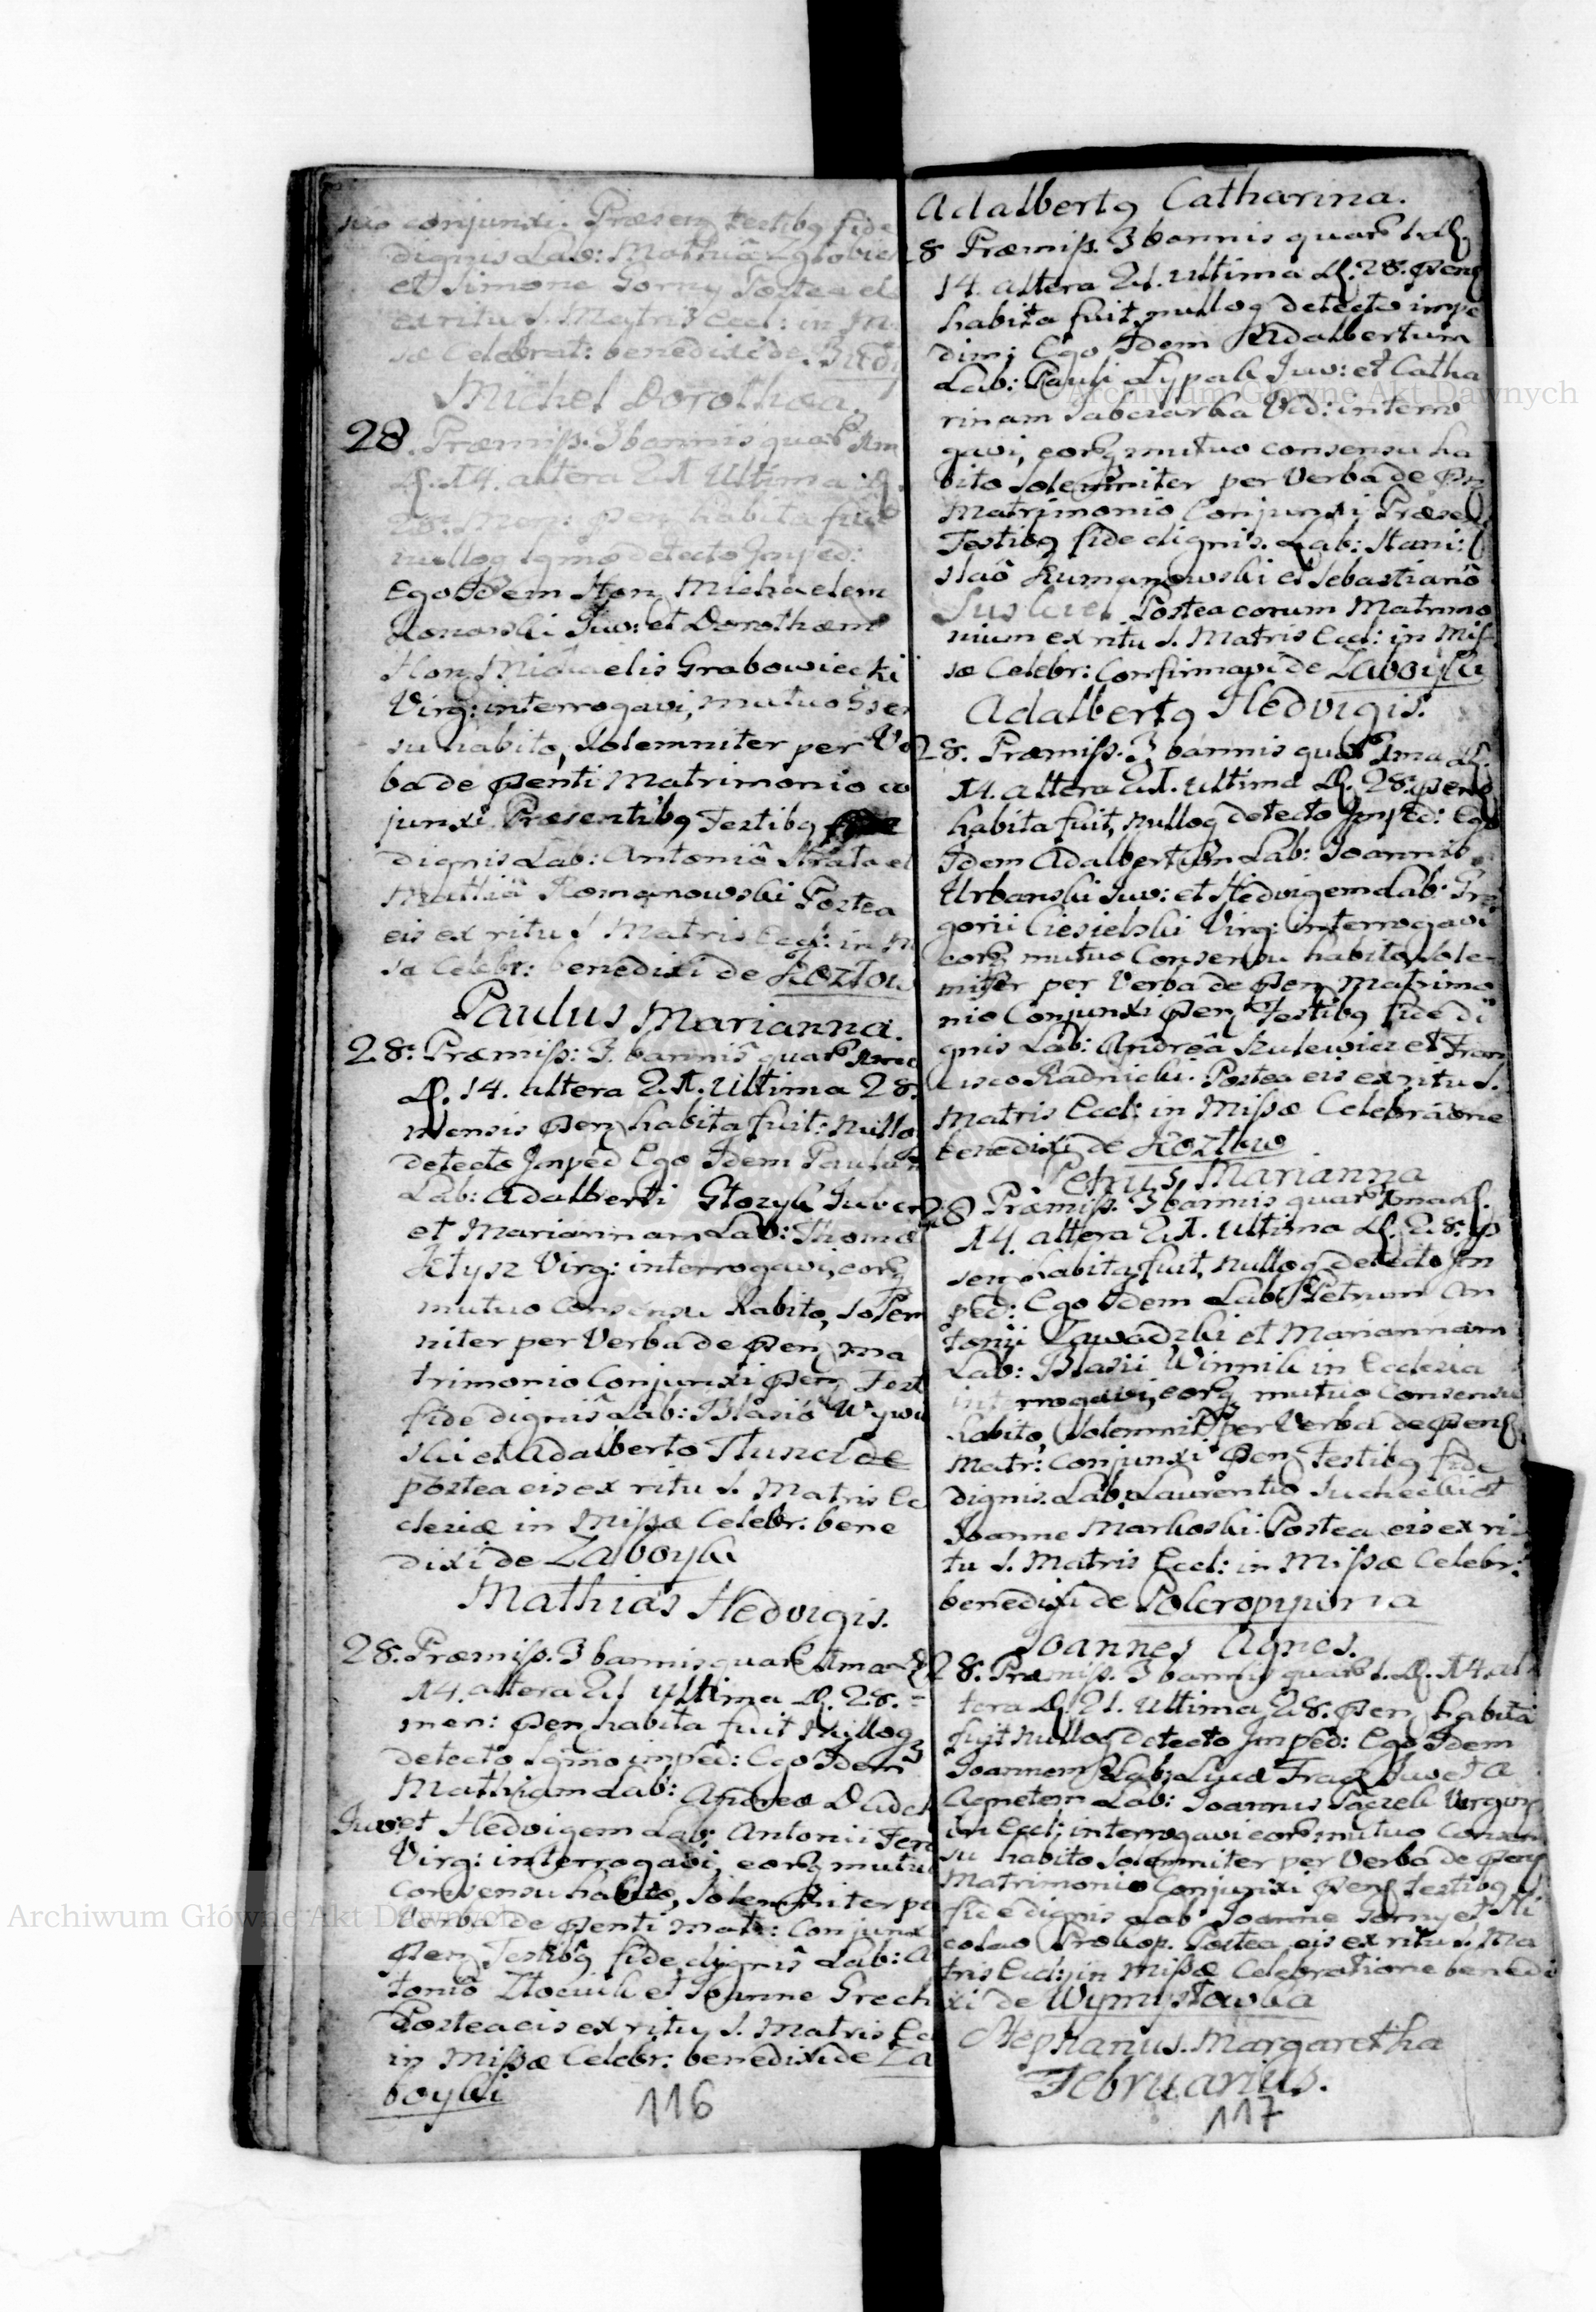 suo conjunxi. Præsen testibq fide
dignis Lab: Mathiâ Zgłobic
et Simone Gorny Postea eis
ex ritu S. Matris Eccl: in M
sæ Celebrat: benedixi de
Michel Dorothea.
28. Præmiss. 3 bannis quar 1ma
D. 14. altera 21 Ultima D.
28. Men: pen habita fuit
nulloq lgmo detecto Imped:
Ego Idem Hon Michaelem
Juv: et Dorotheam
Hon Michaelis Grabowiecki
Virg: interrogavi, mutuo
su habito, Solemniter per Ve
ba de psenti Matrimonio co
junxi Præsentibq Testibq
dignis Lab: Antoniô Strata et
Mathiâ Romanowski Postea
eis ex ritu S Matris Eccl: in M
sa Celebr: benedixi de Kozłow
Paulus Marianna.
28. Præmiss: 3. bannis quar 1ma
D. 14. altera 21. Ultima 28.
mensis psen habita fuit: Nulloq
detecto Imped Ego Idem Paulum
Lab: Adalberti Juven
et Mariannam Lab: Thomæ
Virg: interrogavi, eorq
mutuo Consensu habito, Solem
niter per Verba de psen ma
trimonio Conjunxi psen Test
fide dignis Lab: Blasiô Wywi
ski et Adalberto
postea eis ex ritu S. Matris Ec
clesiæ in Missæ Celebr: bene
dixi de Zaboyki
Mathias Hedvigis.
28. Præmiss. 3 bannis quar 1ma D
14. altera 21 ultima D. 28.
men: psen habita fuit Nulloq
detecto lgmo imped: Ego Idem
Mathiam Lab: Andreæ Dudek
Juv et Hedvigem Lab: Antonii
Virg: interrogavi, eorq mutuo
consensu habito, Solemniter per
Verba de psenti Mat: Conjunx
psen Testibq fide dignis Lab: A
toniô et Joanne Grech
Postea eis ex ritu S. Matris Ec
in Missæ Celebr: benedixi de Za
boyki
116
Adalbertq Catharina.
28 Præmiss. 3 bannis quar 1 D
14. altera 21. Ultima D. 28. psen
habita fuit, nulloq detecto impe
dim; Ego Idem Adalbertum
Lab: Pauli Lypak Juv: et Catha
rinam Vid: interro
gavi, eorq mutuo consensu ha
bito Solemniter per Verba de psn
Matrimonio Conjunxi Præsen
Testibq fide dignis. Lab: Stani:
slaô Rumanowski et Sebastianô
Postea eorum Matrimo
nium ex ritu S. Matris Eccl: in Mis
sæ Celebr: Confirmavi de Zaboyki
Adalbertq Hedvigis.
28. Præmiss. 3 bannis quar 1ma D.
14. altera 21. Ultima D. 28. psen
habita fuit, Nulloq detecto Imped: Ego
Idem Adalbertum Lab: Joannis
Urbanski Juv: et Hedvigem Lab: Gre
gorii Ciesielski Virg: interrogavi
eorq mutuo Consensu habito, Sole-
miter per Verba de psen Matrimo
nio Conjunxi psen Testibq fide di
gnis Lab: Andreâ Kulewicz et Fran
cisco Radnicki. Postea eis ex ritu S.
Matris Eccl: in Missæ Celebraône
benedixi de Kozłow
Petrus Marianna
28 Præmiss. 3 bannis quar 1ma D.
14. altera 21. Ultima D. 28. p
sen habita fuit, nulloq detecto Im
ped: Ego Idem Lab: Petrum An
tonii Zawadzki et Mariannam
Lab: Blasii Winnik in Ecclesia
interrogavi, eorq mutuo Consensu
habito, Solemnit per Verba de psen
Matr: Conjunxi psen Testibq fide
dignis. Lab. Laurentio Suchecki et
Joanne Markoski. Postea eis ex ri
tu S. Matris Eccl: in Missæ Celebr:
benedixi de Pokropywna
Joannes Agnes.
28. Præmiss. 3 bannis quar 1. D. 14. al
tera D. 21. Ultima 28. psen habita
fuit Nulloq detecto Imped: Ego Idem
Joannem Lab: Lucæ Fracz Juv et A
Agnetem Lab: Joannis Paczek Virgine
in Eccl: interrogavi eorq mutuo Consen
su habito Solemniter per Verba de psen
Matrimonio Conjunxi psen testibq
fide dignis Lab Joanne Gorny et Ni
colao Prokop. Postea eis ex ritu S. Ma
tris Eccl: in Missæ Celebratione benedi
xi de Wymysłowka
Stephanus. Margaretha
Februarius.
117
Archiwum Główne Akt Dawnych
Archiwum Główne Akt Dawnych